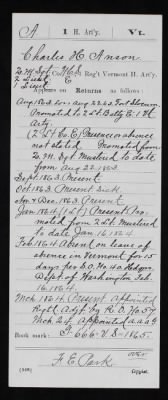 A | 1 H. Art'y. | Vt.
Charles H. Anson
Q. M. Sgt., Co. E, Reg't Vermont H. Art'y.
2 Lieut
1 Lieut
Appears on Returns as follows:
Aug 1863 for Aug 22 63. Fort Slocum
Promoted to 2 Lt Batty E. 1st Vt
Arty
(2 Lt Co E) Presence or absence
not stated Promoted from
Q. M. Sgt Mustered to date
from Aug 22 1863
Sept 1863 Present
Oct 1863 Present Sick
Nov & Dec 1863. Present
Jan 1864 (1 Lt) Present Pro-
moted from 2 Lt Mustered
to date Jan 16 1864
Feb 1864 Absent on leave of
absence in Vermont for 15
days per S.O. No 40 Hdqrs
Dept of Washington Feb
16 1864.
Mch 1864 Present Appointed
Regtl Adjt by R.O. No 57
Mch 24
Book mark:
F. E. Park
Copyist.